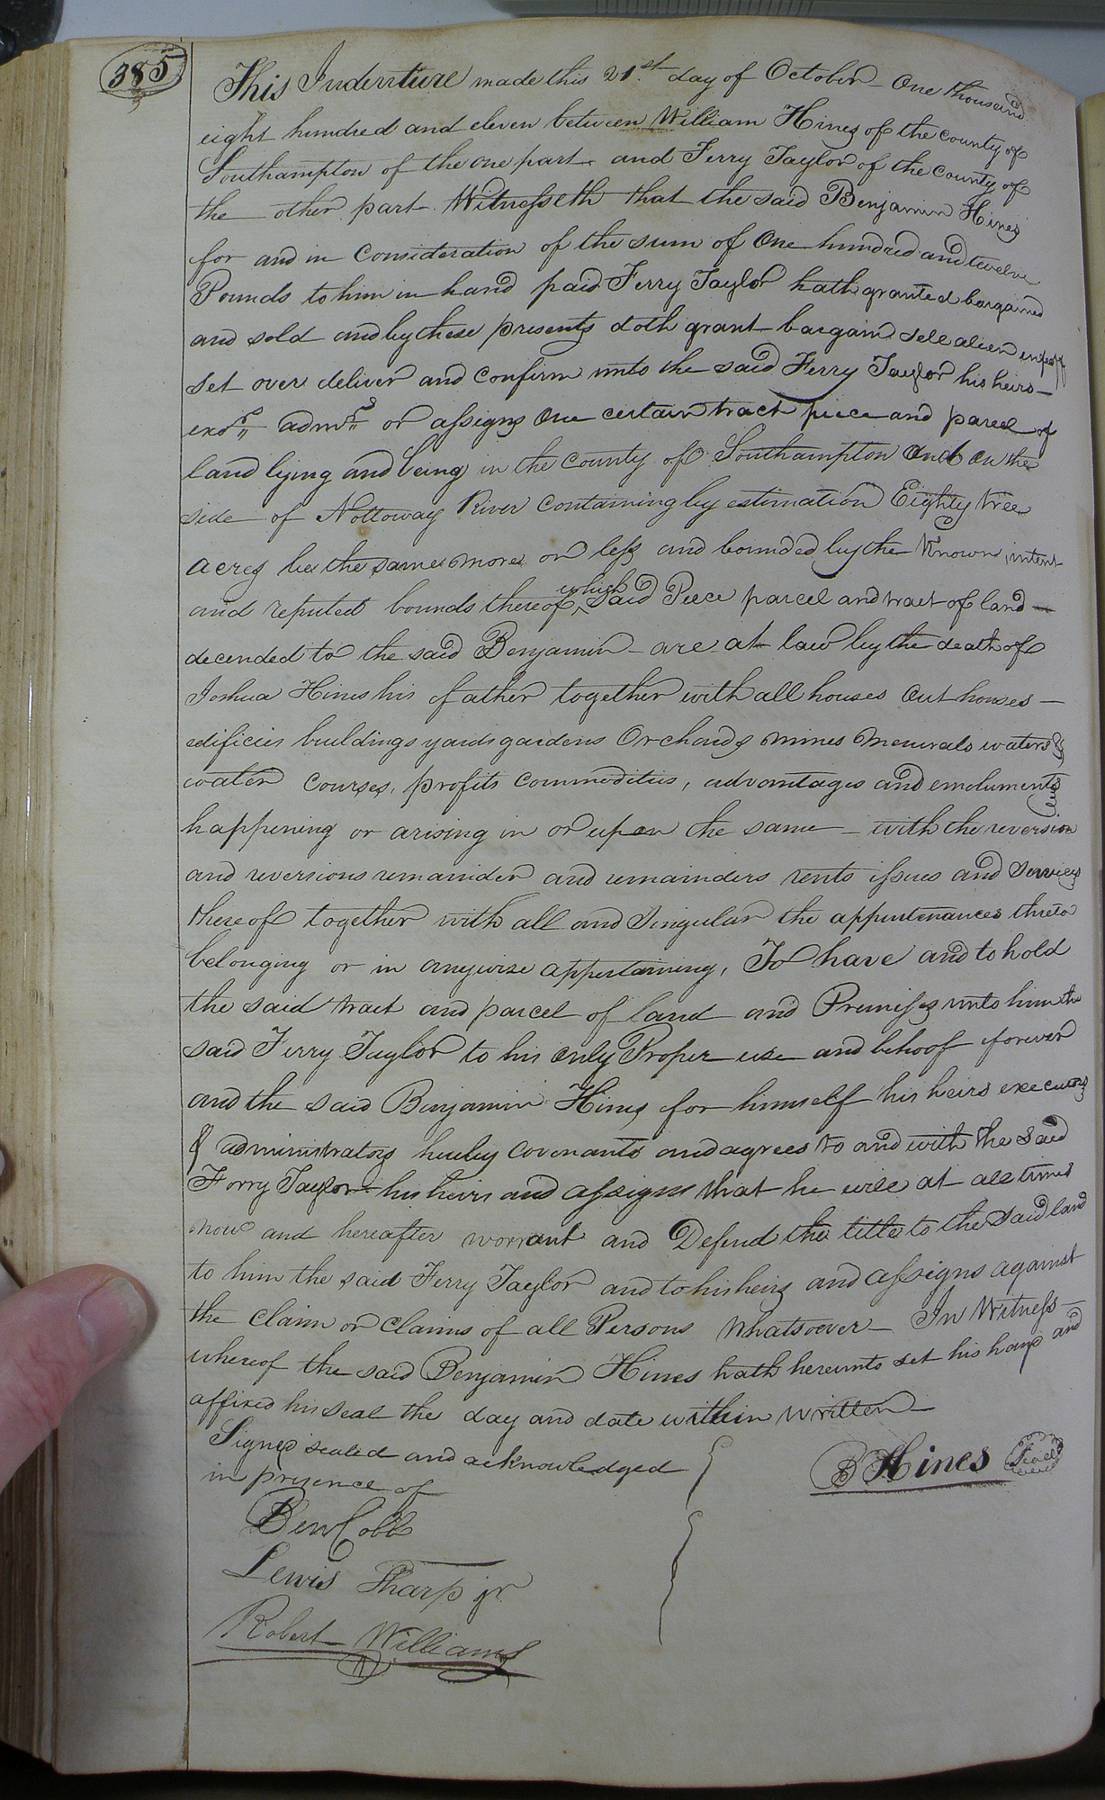 385
This Indenture made this 21st day of October One thousand
eight hundred and eleven between William Hines of the county of
Southampton of the one part and Ferry Taylor of the county of
the other part Witnesseth that the said Benjamin Hines
for and in consideration of the sum of One hundred and twelve
Pounds to him in hand paid Ferry Taylor hath granted bargained
and sold and by these presents doth grant bargain sell alien enfeoff
set over deliver and confirm unto the said Ferry Taylor his heirs
exors admrs or assigns One certain tract piece and parcel of
land lying and being in the county of Southampton and on the
side of Nottoway River containing by estimation Eighty three
acres be the same more or less and bounded by the known intent
and reputed bounds thereof which said Peece parcel and tract of land
decended to the said Benjamin are at law by the death of
Joshua Hines his father together with all houses out houses
edificies buildings yards gardens Orchards mines menerals waters &
water courses, profits commodities, advantages and emoluments
happening or arising in or upon the same with the reversion
and reversions remainder and remainders rents issues and services
thereof together with all and singular the appurtenances thereto
belonging or in anywise appertaining, To have and to hold
the said tract and parcel of land and Premises unto him the
said Ferry Taylor to his only Proper use and behoof forever
and the said Benjamin Hines for himself his heirs executors
& administrators hereby covenants and agrees to and with the said
Ferry Taylor his heirs and assigns that he will at all times
now and hereafter worrant and Defend the title to the said land
to him the said Ferry Taylor and to his heirs and assigns against
the claim or claims of all Persons whatsoever In Witness
whereof the said Benjamin Hines hath hereunto set his hand and
affixed his seal the day and date within written
Signed sealed and acknowledged
in presence of
B Hines Seal
Ben Cobb
Lewis Tharp jr
Robert Williams